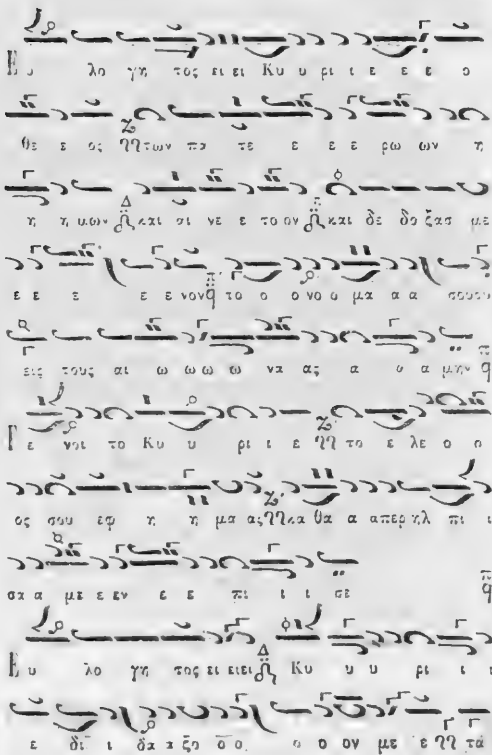 Ευ λο γη τος ει ει Κυ υ ρι ι ε ε ε ε ο
θε ε ος των πα τε ε ε ε ρω ων η
η η μων και αι νε ε το ον και δε δο ξασ με
ε ε ε ε ε νον το ο ο νο ο μα α α σου ου
εις τους αι ω ω ω ω να ας α α α μην
Γε νοι το Κυ υ ρι ι ε το ε λε ο ο
ος σου εφ η η μα ας κα θα α απερ ηλ πι ι
σα α με ε εν ε ε πι ι ι σε
Ευ λο γη τος ει ειει Κυ υ υ ρι ι ι
ε δι ι δα α ξο ο ο ο ον με ε τα